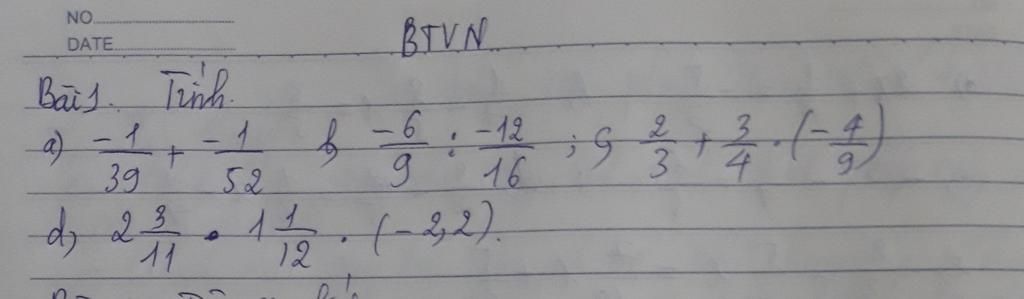 NO.
DATE
BTVN
Bài 1. Tính.
a) -1/39 + -1/52 b) -6/9 : -12/16 ; c) 2/3 + 3/4 . (-4/9)
d) 2 3/11 . 1 1/12 . (-2,2).